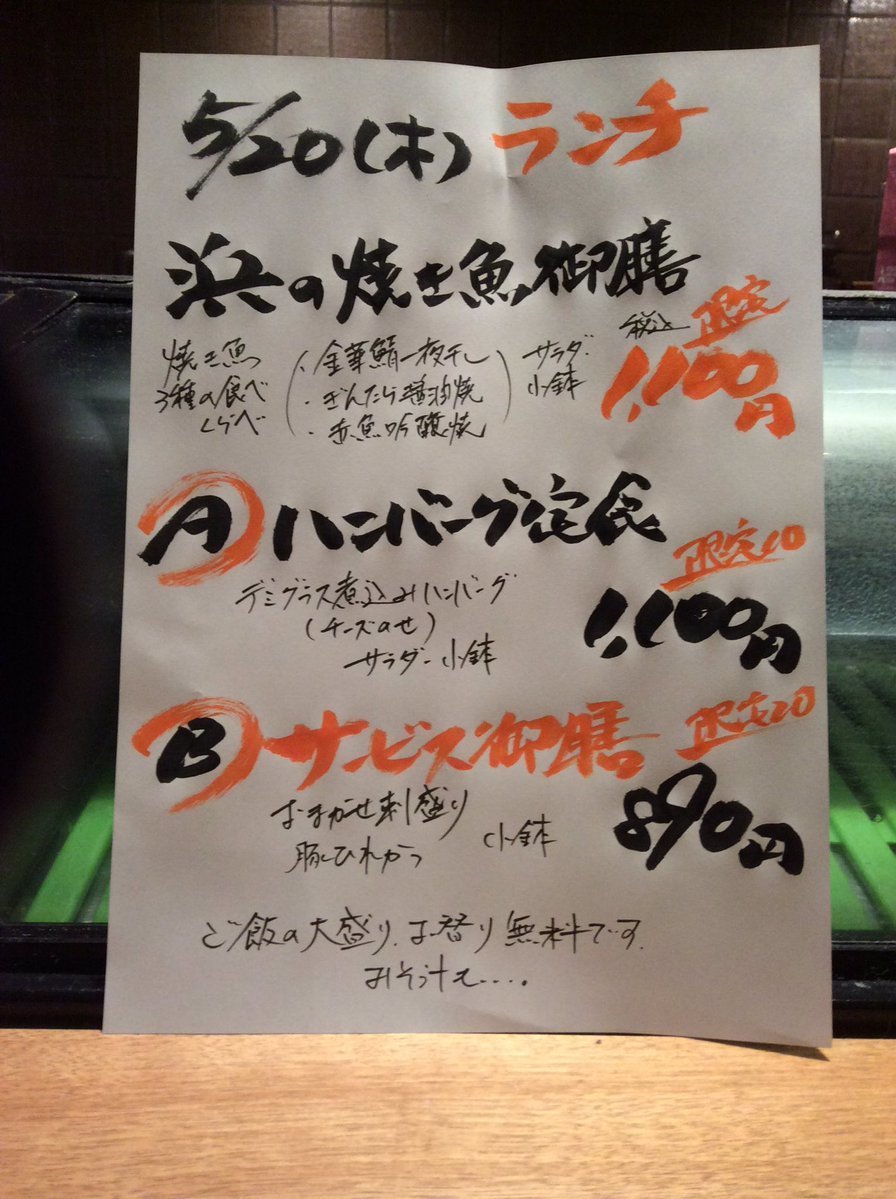 5/20(木) ランチ
浜の焼き魚御膳
焼き魚
3種の食べ
くらべ
・金華鯖一夜干し
・ぎんだら醤油焼
・赤魚吟醸焼
サラダ・
小鉢
税込
限定
1,100円
A ハンバーグ定食
限定10
デミグラス煮込みハンバーグ
(チーズのせ)
サラダ・小鉢
1,100円
B サービス御膳
限定20
おまかせ刺し盛り
豚ヒレかつ
小鉢
890円
ご飯の大盛り、お替り無料です。
みそ汁も....